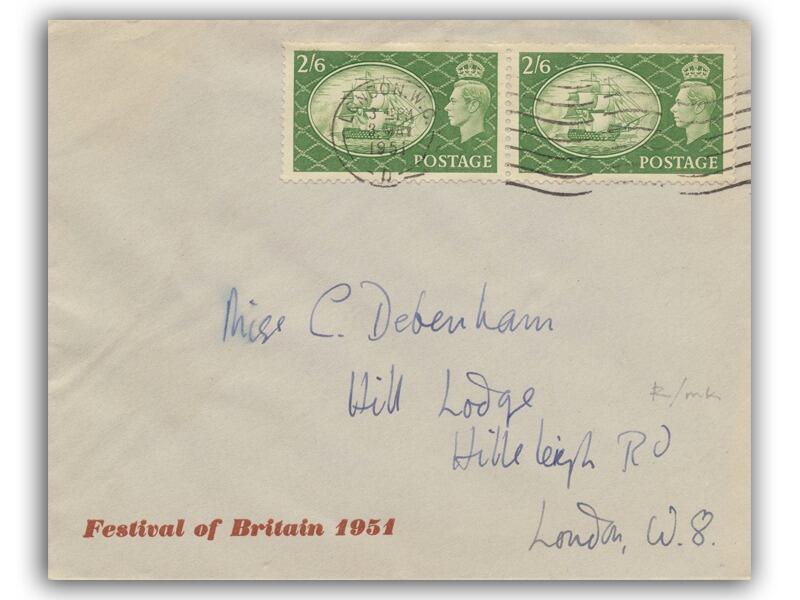 2/6 POSTAGE
2/6 POSTAGE
LONDON. W.C.
3 MAY
1951
D
Miss C. Debenham
Hill Lodge
Hillsleigh RD
London, W.8.
Festival of Britain 1951